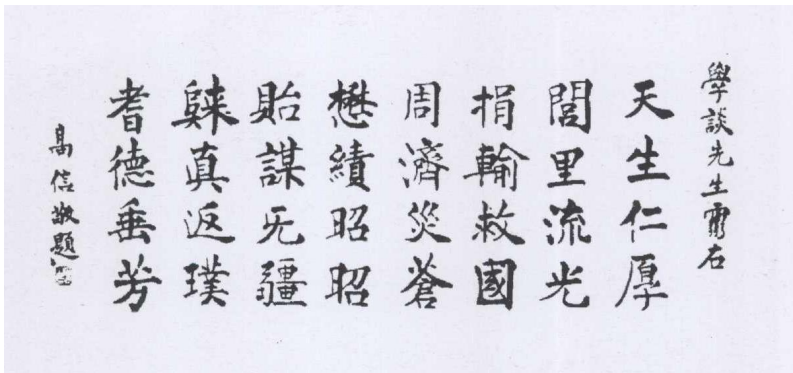 學談先生右
天生仁厚
閭里流光
捐輸救國
周濟災蒼
懋績昭昭
貽謀无疆
歸真返璞
耆德垂芳
高信敬題